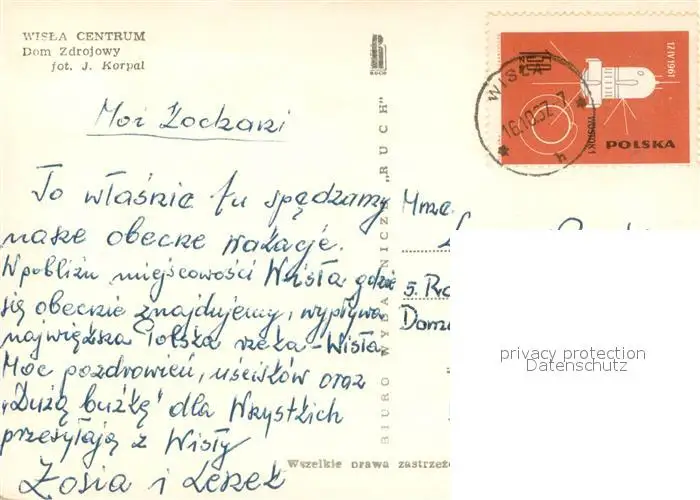 WISŁA CENTRUM
Dom Zdrojowy
fot. J. Korpal
Moi Kochani
To właśnie tu spędzamy
nasze obecne wakacje.
W pobliżu miejscowości Wisła gdzie
się obecnie znajdujemy, wypływa
największa Polska rzeka - Wisła
Moc pozdrowień, uścisków oraz
"Dużą buźkę" dla Wszystkich
przesyłają z Wisły
Zosia i Leszek
RUCH
BIURO WYDAWNICZE "RUCH"
Wszelkie prawa zastrzeż
WISŁA
12 IV 1961
WOSTOK 1
POLSKA
5.
privacy protection
Datenschutz